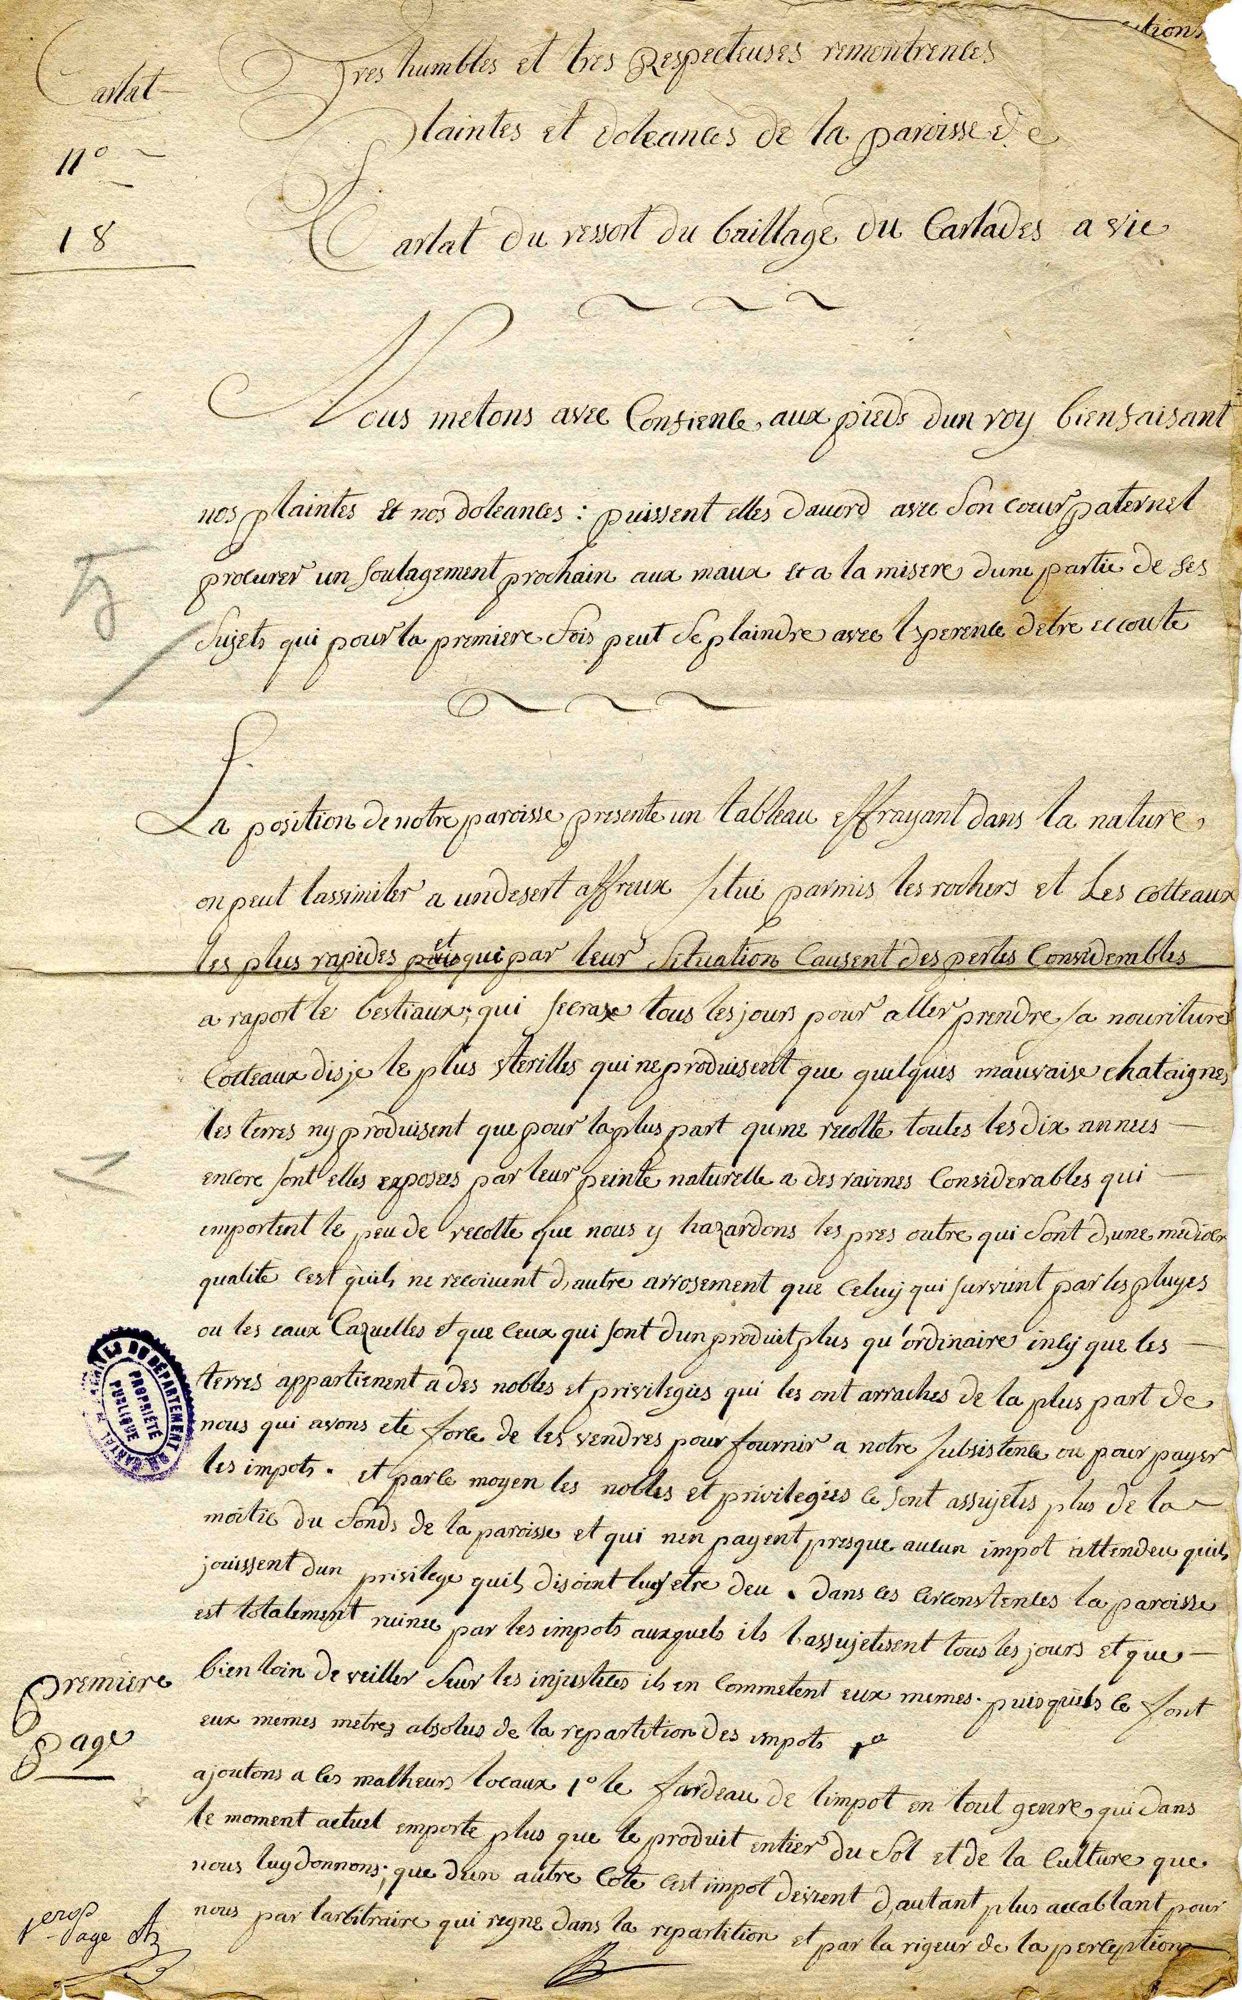 Carlat
N°
18
ctions
Tres humbles et tres Respecteuses remontrences
Plaintes et doleances de la paroisse de
Carlat du ressort du baillage du Carlades a vic
Nous metons avec Confience aux pieds dun roy bienfaisant
nos plaintes et nos doleances : puissent elles dacord avec son cœur paternel
procurer un soulagement prochain aux maux et a la misere dune partie de ses
sujets qui pour la premiere fois peut se plaindre avec lesperence detre ecoute
La position de notre paroisse presente un tableau effrayant dans la nature
on peut lassimiler a un desert affreux situé parmis les rochers et les cotteaux
les plus rapides et qui par leur situation causent des pertes Considerables
a raport le bestiaux ; qui secrase tous les jours pour aller prendre sa nouriture
Cotteaux disje le plus sterilles qui ne produisent que quelques mauvaise chataignes
les terres ny produisent que pour la plus part qune recolte toutes les dix annees
encore sont elles exposees par leur peinte naturelle a des ravines Considerables qui
importent le peu de recolte que nous y hazardons les pres outre qui sont d'une mediocre
qualite cest quils ne recoivent d'autre arrosement que celuy qui survient par les pluyes
ou les eaux Cazuelles et que ceux qui sont dun produit plus qu'ordinaire incy que les
terres appartienent a des nobles et privilegies qui les ont arraches de la plus part de
nous qui avons ete force de les vendres pour fournir a notre subsistence ou pour payer
les impots . et par ce moyen les nobles et privilegies ce sont assujetis plus de la
moitie du fonds de la paroisse et qui nen payent presque aucun impot attendeu quils
jouissent dun privilege quils disoint luy etre deu . dans ces circonstences la paroisse
est totalement ruinee par les impots auxquels ils lassujetisent tous les jours et que
bien loin de veiller seur les injustices ils en commetent eux memes . puisquils ce sont
eux memes metres absolus de la repartition des impots
ajoutons a ces malheurs locaux 1° le fardeau de limpot en tout genre, qui dans
le moment actuel emporte plus que le produit entier du sol et de la culture que
nous luy donnons ; que dun autre cote cest impot devient d'autant plus accablant pour
nous par larbitraire qui regne dans la repartition et par la rigeur de la perception
ARCHIVES DU DÉPARTEMENT DU CANTAL
PROPRIÉTÉ
PUBLIQUE
premiere
page
1ere page